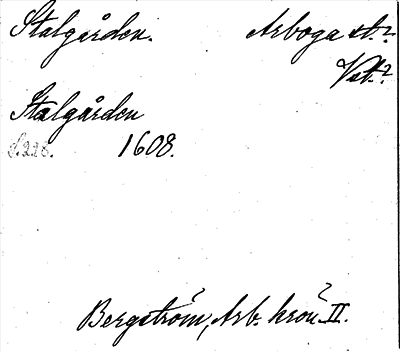 Stalgården. Arboga st.?
Vstl.?
Stalgården
S. 228. 1608.
Bergström, Arb. krön. II.